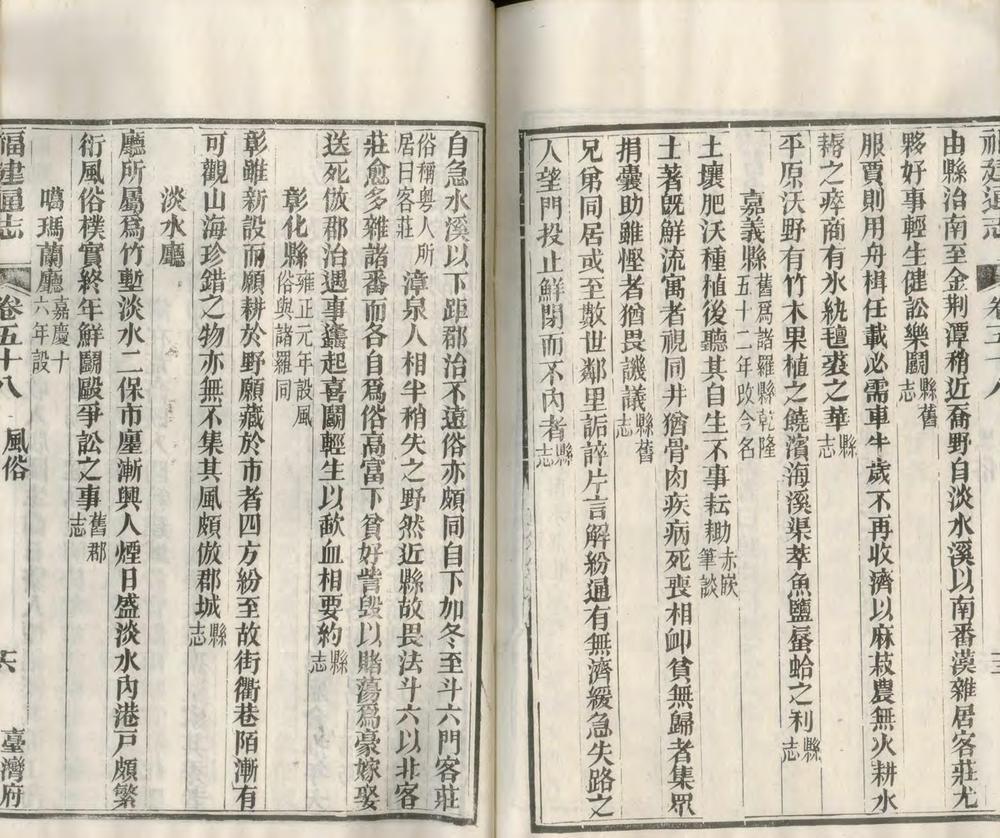 福建通志
卷五十八
由縣治南至金荆潭稍近喬野自淡水溪以南番漢雜居客莊尤
夥好事輕生健訟樂鬭縣舊志
服賈則用舟楫任載必需車牛歲不再收濟以麻菽農無火耕水
耨之瘁商有氷紈氊裘之華縣志
平原沃野有竹木果植之饒濱海溪渠萃魚鹽蜃蛤之利縣志
嘉義縣舊爲諸羅縣乾隆五十二年改今名
土壤肥沃種植後聽其自生不事耘耡赤嵌筆談
土著旣鮮流寓者視同井猶骨肉疾病死喪相卹貧無歸者集眾
捐囊助雖慳者猶畏譏議縣舊志
兄弟同居或至數世鄰里詬誶片言解紛通有無濟緩急失路之
人望門投止鮮閉而不內者縣志
自急水溪以下距郡治不遠俗亦頗同自下加冬至斗六門客莊
俗稱粤人所居曰客莊漳泉人相半稍失之野然近縣故畏法斗六以北客
莊愈多雜諸番而各自爲俗高富下貧好訾毀以賭蕩爲豪嫁娶
送死倣郡治遇事蠭起喜鬭輕生以歃血相要約縣志
彰化縣雍正元年設風俗與諸羅同
彰雖新設而願耕於野願藏於市者四方紛至故街衢巷陌漸有
可觀山海珍錯之物亦無不集其風頗倣郡城縣志
淡水廳
廳所屬爲竹塹淡水二保市廛漸興人煙日盛淡水內港戸頗繁
衍風俗樸實終年鮮鬭毆爭訟之事舊郡志
噶瑪蘭廳嘉慶十六年設
福建通志
卷五十八
風俗
臺灣府